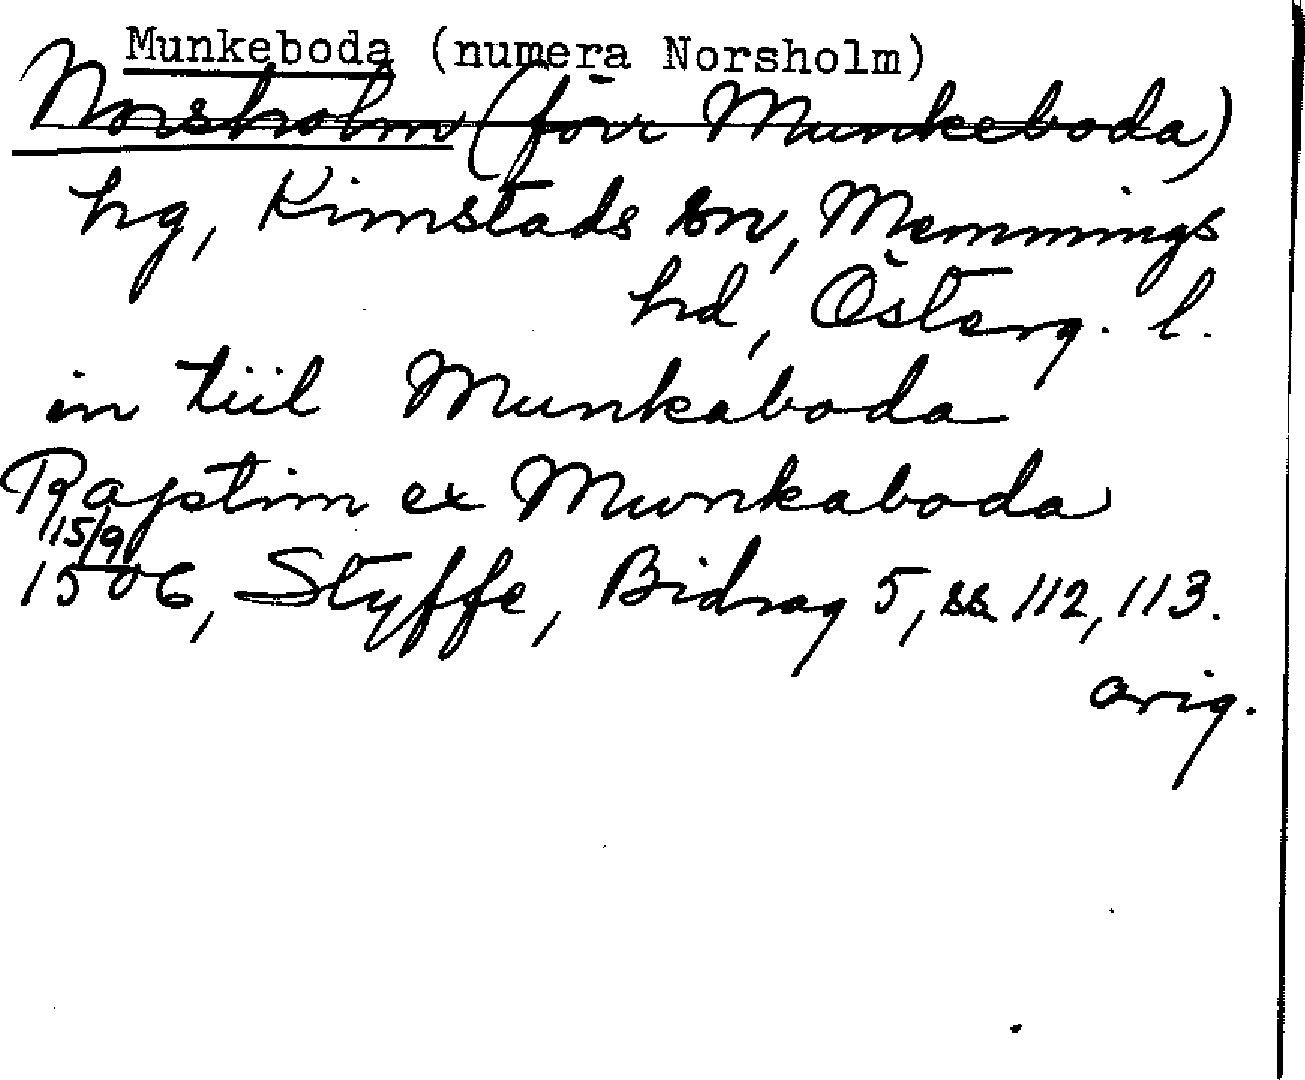 Munkeboda (numera Norsholm)
Norsholm (förr Munkeboda)
hg, Kimstads sn, Memmings
hd, Österg. l.
in tiil Munkaboda
Raptim ex Munkaboda
15/9
1506, Styffe, Bidrag 5, ss 112, 113.
orig.